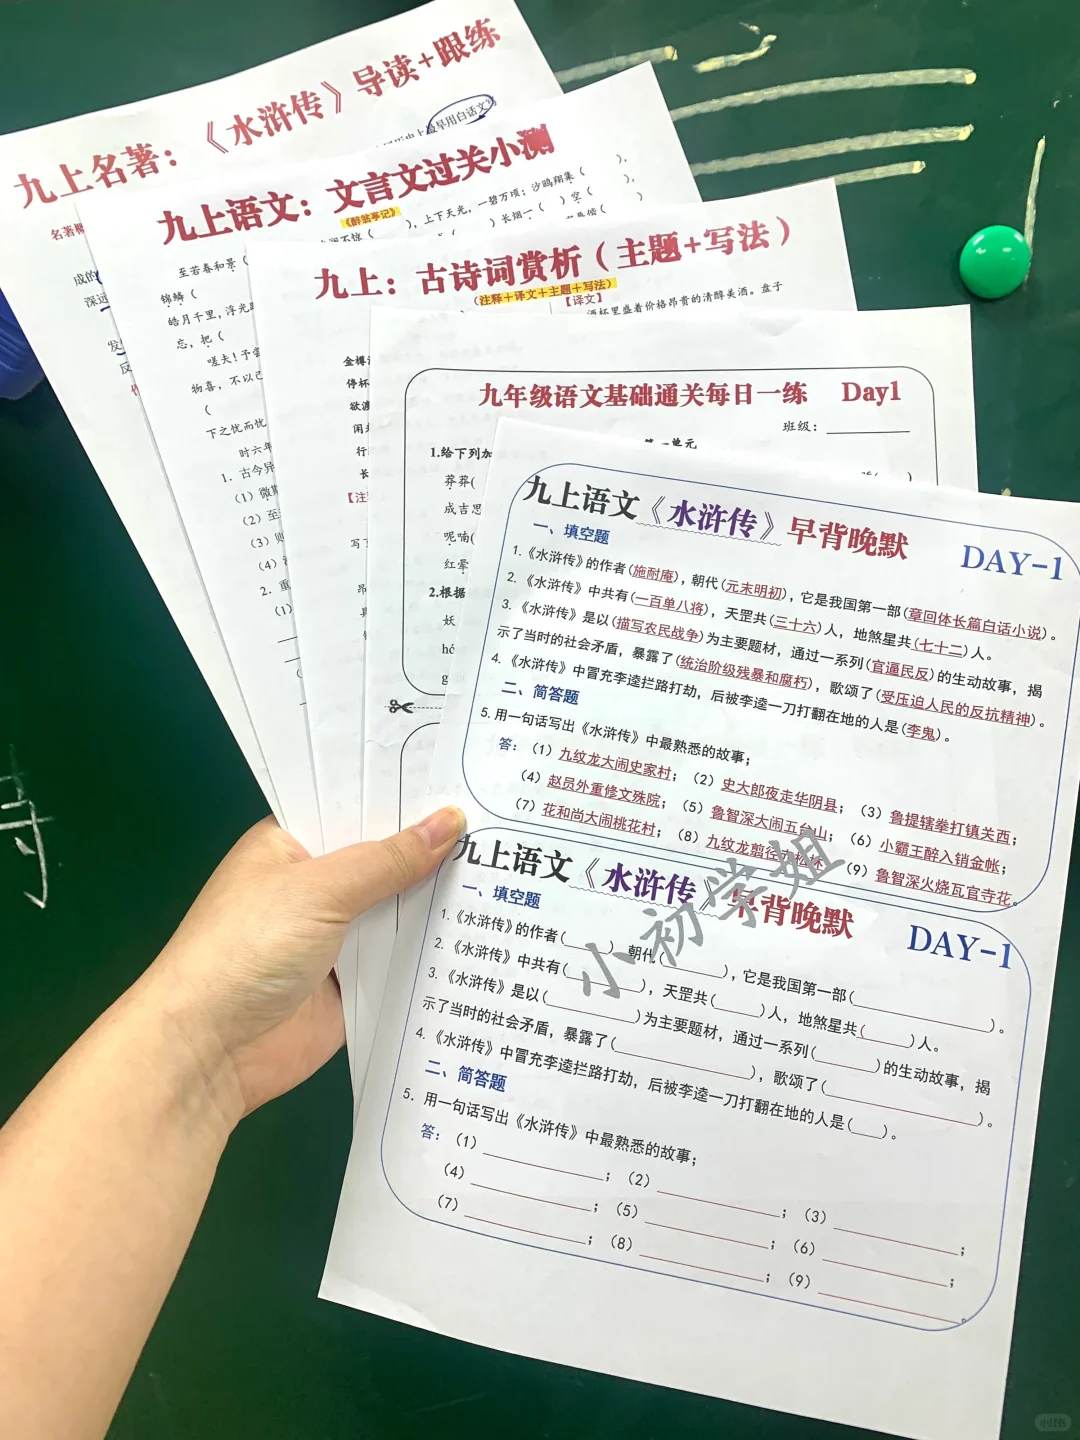 九上名著：《水浒传》导读+跟练
早用白话文写
名著
成的
深远
发
反
九上语文：文言文过关小测
《醉翁亭记》
至若春和景（
不惊（ ），上下天光，一碧万顷；沙鸥翔集（ ），
锦鳞（
长烟一（ ）空（ ），
皓月千里，浮光
忘，把（
嗟夫！予尝
物喜，不以己
（
下之忧而忧
时六年
1．古今异
（1）微
（2）至
（3）则
（4）
2．重
（1）
九上：古诗词赏析（主题+写法）
（注释+译文+主题+写法）
【译文】
酒杯里盛着价格昂贵的清醇美酒。盘子
金樽
停杯
欲渡
闲
行
长
写
昂
九年级语文基础通关每日一练 Day1
班级：
单元
1.给下列加
莽莽(
成吉思
呢喃(
红晕
2.根据
妖
hé
g
九上语文《水浒传》早背晚默 DAY-1
一、填空题
1.《水浒传》的作者(施耐庵)，朝代(元末明初)，它是我国第一部(章回体长篇白话小说)。
2.《水浒传》中共有(一百单八将)，天罡共(三十六)人，地煞星共(七十二)人。
3.《水浒传》是以(描写农民战争)为主要题材，通过一系列(官逼民反)的生动故事，揭
示了当时的社会矛盾，暴露了(统治阶级残暴和腐朽)，歌颂了(受压迫人民的反抗精神)。
4.《水浒传》中冒充李逵拦路打劫，后被李逵一刀打翻在地的人是(李鬼)。
二、简答题
5.用一句话写出《水浒传》中最熟悉的故事；
答：（1）九纹龙大闹史家村；（2）史大郎夜走华阴县；（3）鲁提辖拳打镇关西；
（4）赵员外重修文殊院；（5）鲁智深大闹五台山；（6）小霸王醉入销金帐；
（7）花和尚大闹桃花村；（8）九纹龙剪径赤松林 （9）鲁智深火烧瓦官寺花。
九上语文《水浒传》早背晚默 DAY-1
一、填空题
1.《水浒传》的作者(____) 朝代(____)，它是我国第一部(____)。
2.《水浒传》中共有(____)，天罡共(____)人，地煞星共(____)人。
3.《水浒传》是以(____)为主要题材，通过一系列(____)的生动故事，揭
示了当时的社会矛盾，暴露了(____)，歌颂了(____)。
4.《水浒传》中冒充李逵拦路打劫，后被李逵一刀打翻在地的人是(____)。
二、简答题
5.用一句话写出《水浒传》中最熟悉的故事；
答：（1）____；（2）____；（3）____；
（4）____；（5）____；（6）____；
（7）____；（8）____；（9）____。
小初学姐
小红书